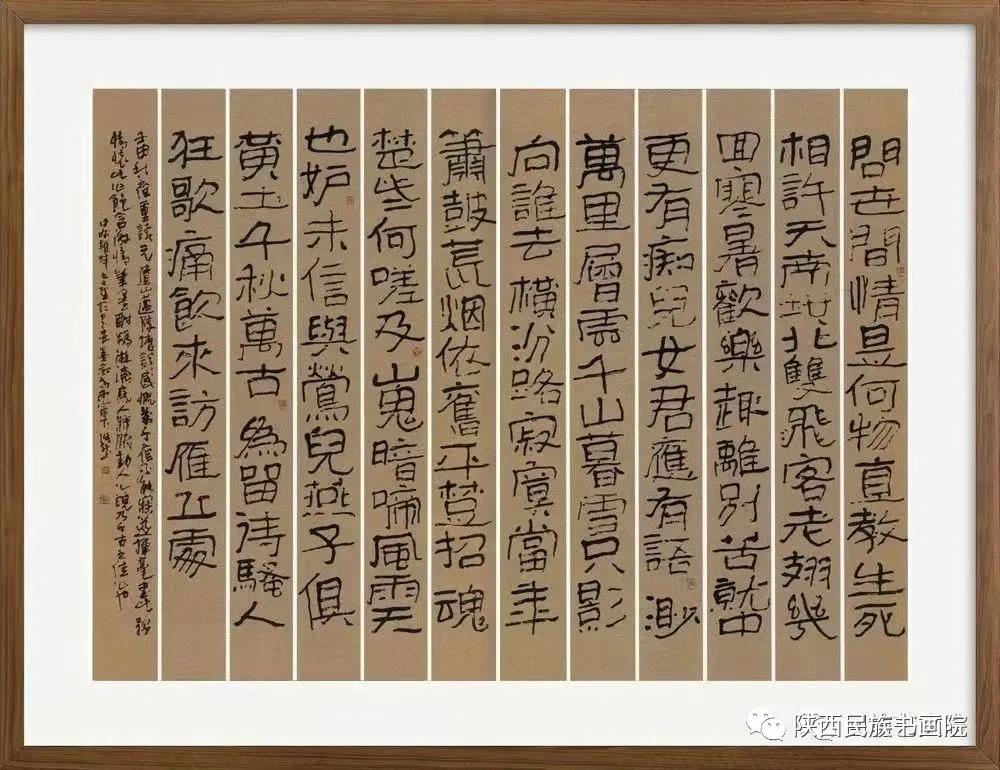 問世間情是何物直教生死
相許天南地北雙飛客老翅幾
回寒暑歡樂趣離別苦就中
更有痴兒女君應有語渺
萬里層雲千山暮雪只影
向誰去橫汾路寂寞當年
簫鼓荒烟依舊平楚招魂
楚些何嗟及山鬼暗啼風雨天
也妒未信與鶯兒燕子俱
黃土千秋萬古為留待騷人
狂歌痛飲來訪雁丘處
秋夜重讀元遺山
陕西民族书画院